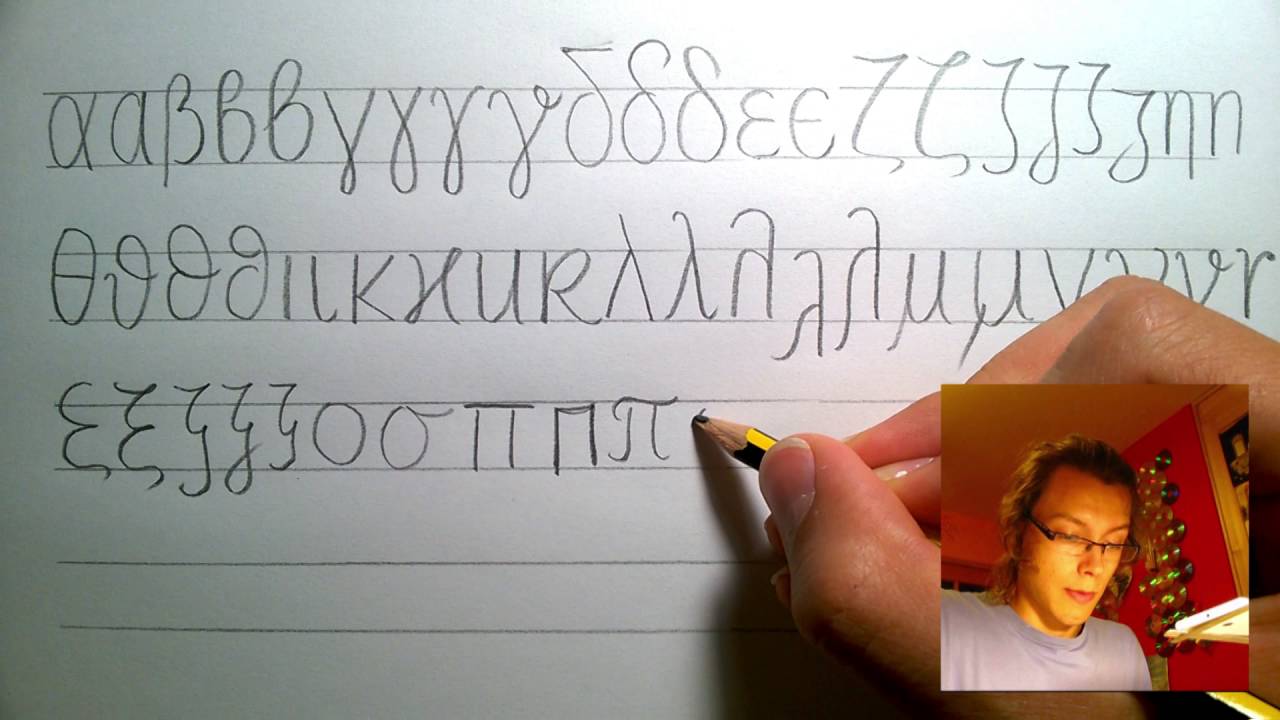 α α β β β γ γ γ γ δ δ δ ε ϵ ζ ζ ζ ζ ζ ζ η η
θ ϑ θ ϑ ι ι κ ϰ κ κ λ λ λ λ λ μ μ ν ν ν ν
ξ ξ ξ ξ ξ ο ο π π π